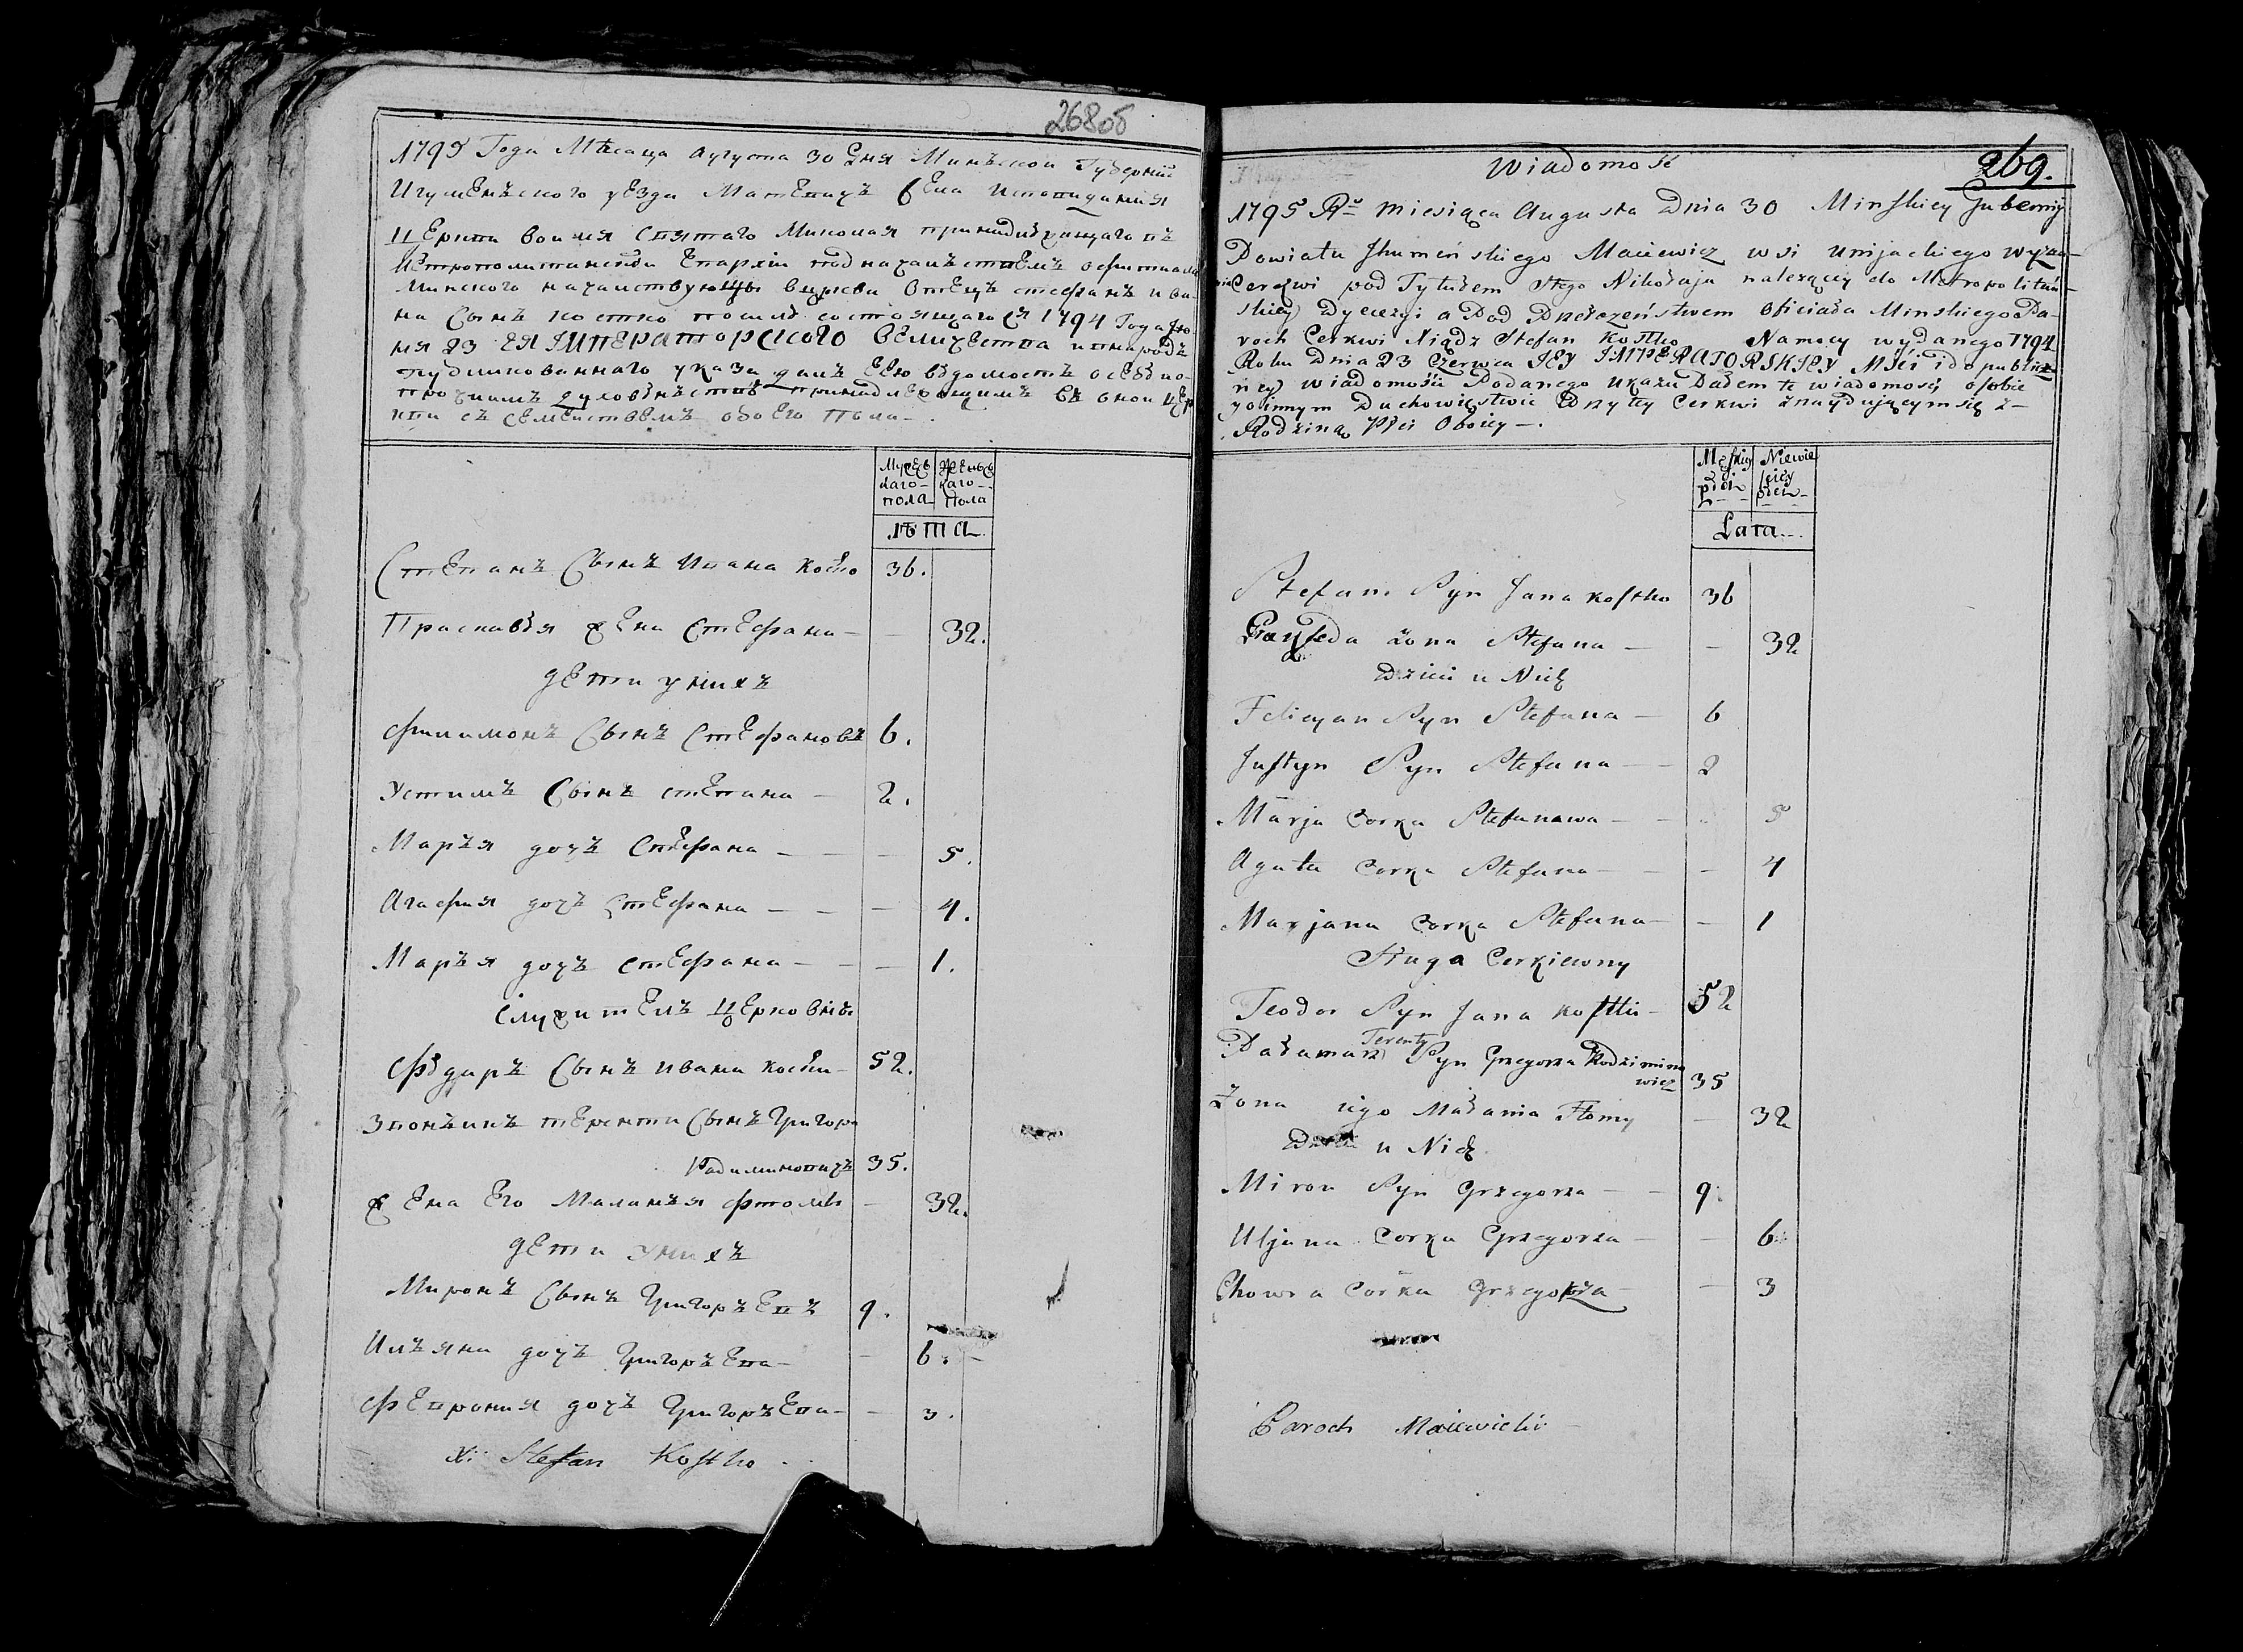 268об
1795 Года Мѣсаца Августа 30 Дня Минской Губерній
Игуменъского уезда Мацевичъ Села
Церкви во имя Святаго Николая принадлежащаго въ
Епархіи под
Минского въ церкви Отецъ Стефанъ Ива
на Сынъ Костко 1794 Года Ію
ня 23 ЕЯ ІМПЕРАТОРСКОГО Величества
указа даю сею вѣдомость о себѣ
принадлежащимъ въ оной Цер
кви съ Семействомъ обоего Пола
Мужеска
каго
пола
Женьска
каго
пола
лѣта
Степанъ Сынъ Ивана Костко 36.
Праскавѣя жена Стефана 32.
дети у нихъ
Филимонъ Сынъ Стефановъ 6.
Устимъ Сынъ Степана 2.
Маръя дочъ Стефана 5.
Агафия дочъ Стефана 4.
Маръя дочъ Стефана 1.
Служителъ Церковнъ
Фѣдаръ Сынъ Ивана Костки 52.
Звонъикъ Теренти Сынъ Григора
Радиминовичъ 35.
жена Его Маланъя Фтомы 32.
дети у нихъ
Миронъ Сынъ Григоръевъ 9.
Илъяна дочъ Григоръева 6.
Феврония дочъ Григоръева 3.
X: Stefan Kostko
Wiadomość
269.
1795 Rº Miesiąca Augusta Dnia 30 Minskiey Gubernij
Powiatu Ihumeńskiego Maciewicz wsi Unijackiego wyzna-
nia Cerkwi pod Tytułem Stego Nikołaja należącey do Metropolitań-
skiey Dyecezyi a Pod Zwierzchnictwem Oficiała Minskiego Pa-
roch Cerkwi Xiądz Stefan Kostko Na mocy wydanego 1794
Roku Dnia 23 Czerwca JEY IMPERATORSKIEY Mści i do publicz
ney wiadomości Podanego ukazu Daiem tę wiadomość o sobie
y o innym Duchowieństwie Przy tey Cerkwi znaydującym się z
Rodziną Płci Oboiey
Męskiey
płci
Niewie
sciey
płci
Lata
Stefan Syn Jana Kostko 36
Praxeda żona Stefana 32
Dzieci u Nich
Felicyan Syn Stefana 6
Justyn Syn Stefana 2
Marja Corka Stefanowa 5
Agata Corka Stefana 4
Marjana Corka Stefana 1
Sługa Cerkiewny
Teodor Syn Jana Kostki 52
Pałamarz Terenty Syn Grzegorza Rodzimino
wicz 35
Żona iego Małania Ftomy 32
Dzieci u Nich
Miron Syn Grzegorza 9
Uljana Corka Grzegorza 6
Chowra Corka Grzegorza 3
Paroch Maciewicki